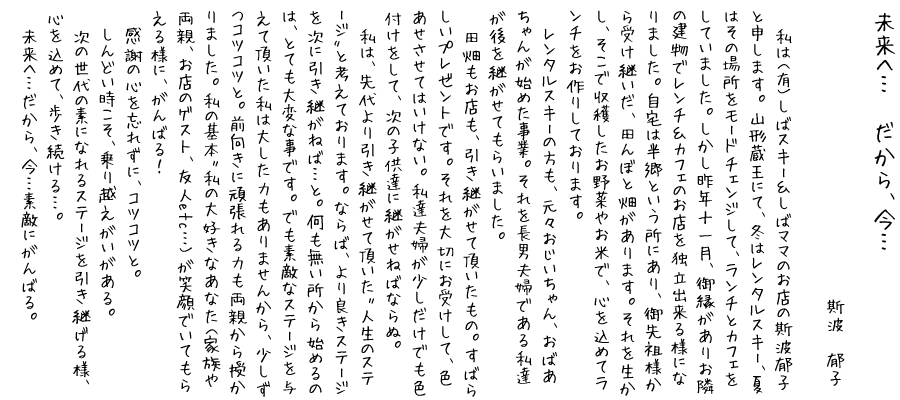 未来へ… だから、今…
斯波 郁子
私は(有)しばスキー&しばママのお店の斯波郁子
と申します。山形蔵王にて、冬はレンタルスキー、夏
はその場所をモードチェンジして、ランチとカフェを
していました。しかし昨年十一月、御縁がありお隣
の建物でレンチ&カフェのお店を独立出来る様にな
りました。自宅は半郷という所にあり、御先祖様か
ら受け継いだ、田んぼと畑があります。それを生か
し、そこで収穫したお野菜やお米で、心を込めてラ
ンチをお作りしております。
レンタルスキーの方も、元々おじいちゃん、おばあ
ちゃんが始めた事業。それを長男夫婦である私達
が後を継がせてもらいました。
田畑もお店も、引き継がせて頂いたもの。すばら
しいプレゼントです。それを大切にお受けして、色
あせさせてはいけない。私達夫婦が少しだけでも色
付けをして、次の子供達に継がせねばならぬ。
私は、先代より引き継がせて頂いた〃人生のステ
ージ〃と考えております。ならば、より良きステージ
を次に引き継がねば…と。何も無い所から始めるの
は、とても大変な事です。でも素敵なステージを与
えて頂いた私は大した力もありませんから、少しず
つコツコツと。前向きに頑張れる力も両親から授か
りました。私の基本〃私の大好きなあなた(家族や
両親、お店のゲスト、友人etc…)が笑顔でいてもら
える様に、がんばる!
感謝の心を忘れずに、コツコツと。
しんどい時こそ、乗り越えがいがある。
次の世代の素になれるステージを引き継げる様、
心を込めて、歩き続ける…。
未来へ…だから、今…素敵にがんばる。